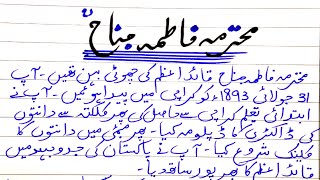 محترمہ فاطمہ جناحؒ
محترمہ فاطمہ جناح قائد اعظم کی چھوٹی بہن تھیں ۔ آپ
31 جولائی 1893ء کو کراچی میں پیدا ہوئیں ۔ آپ نے
ابتدائی تعلیم کراچی سے حاصل کی پھر کلکتہ سے دانتوں
کی ڈاکٹری کا ڈپلومہ کیا ۔ پھر ممبئی میں دانتوں کا
کلینک شروع کیا ۔ آپ نے پاکستان کی جدوجہد میں
قائد اعظم کا بھر پور ساتھ دیا ۔